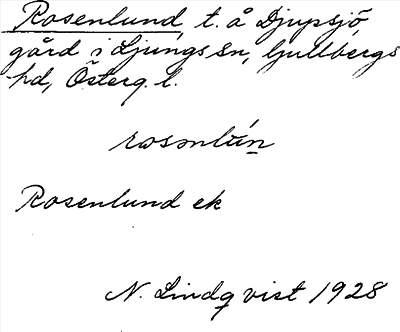 Rosenlund, t. å Djupsjö,
gård i Ljungs sn, Gullbergs
hd, Österg. l.
rωsənlún
Rosenlund ek
N. Lindqvist 1928